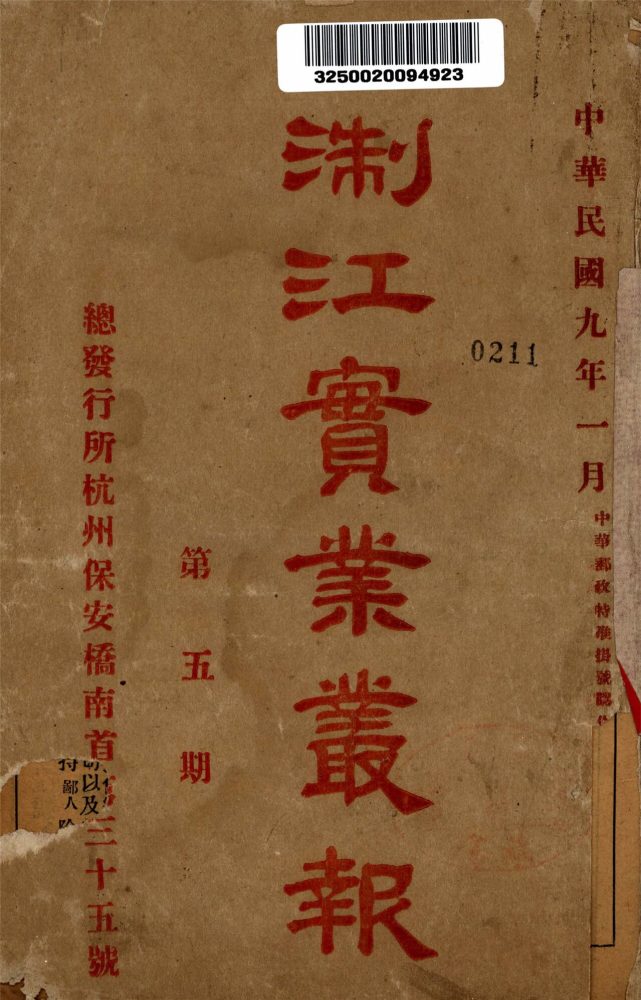 3250020094923
中華民國九年一月
中華郵政特准掛號認
0211
淛江實業叢報
第五期
總發行所杭州保安橋南首三十五號
以及
鄙人